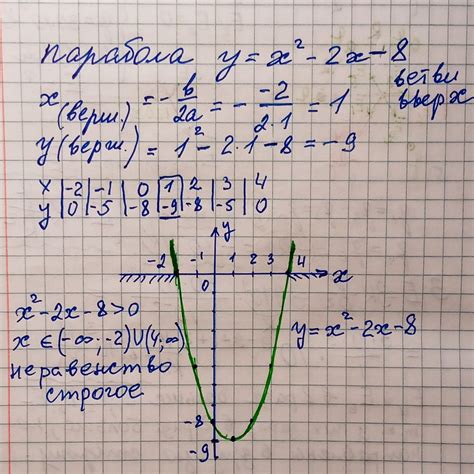 парабола y = x² - 2x - 8
ветви
вверх
x (верш.) = - b/2a = - -2/2·1 = 1
y (верш.) = 1² - 2·1 - 8 = -9
x | -2 | -1 | 0 | 1 | 2 | 3 | 4
y | 0 | -5 | -8 | -9 | -8 | -5 | 0
y
-2 -1 1 2 3 4
0 x
x² - 2x - 8 > 0
x ∈ (-∞; -2) ∪ (4; ∞)
y = x² - 2x - 8
неравенство
строгое
-8
-9